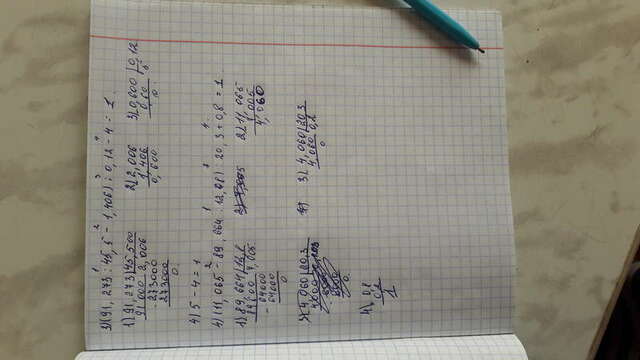 3)(91,273 : 45,5 - 1,406) : 0,12 - 4 = 1.
1) 91,273 | 45,500 2) 2,006 3) 0,600 | 0,12
91000 2,006 1,406 0,60 5
273000 0,600 0
273000
0
4) 5 - 4 = 1
4)(11,065 - 89,664 : 12,8) : 20,3 + 0,8 = 1.
1) 89,664 | 12,8 2) 11,065
89600 7,005 7,005
- 64000 4,060
64000
0
3) 4,060 | 20,3 3) 4,060 | 20,3
4,060 0,2
0
4) 0,8
0,2
1